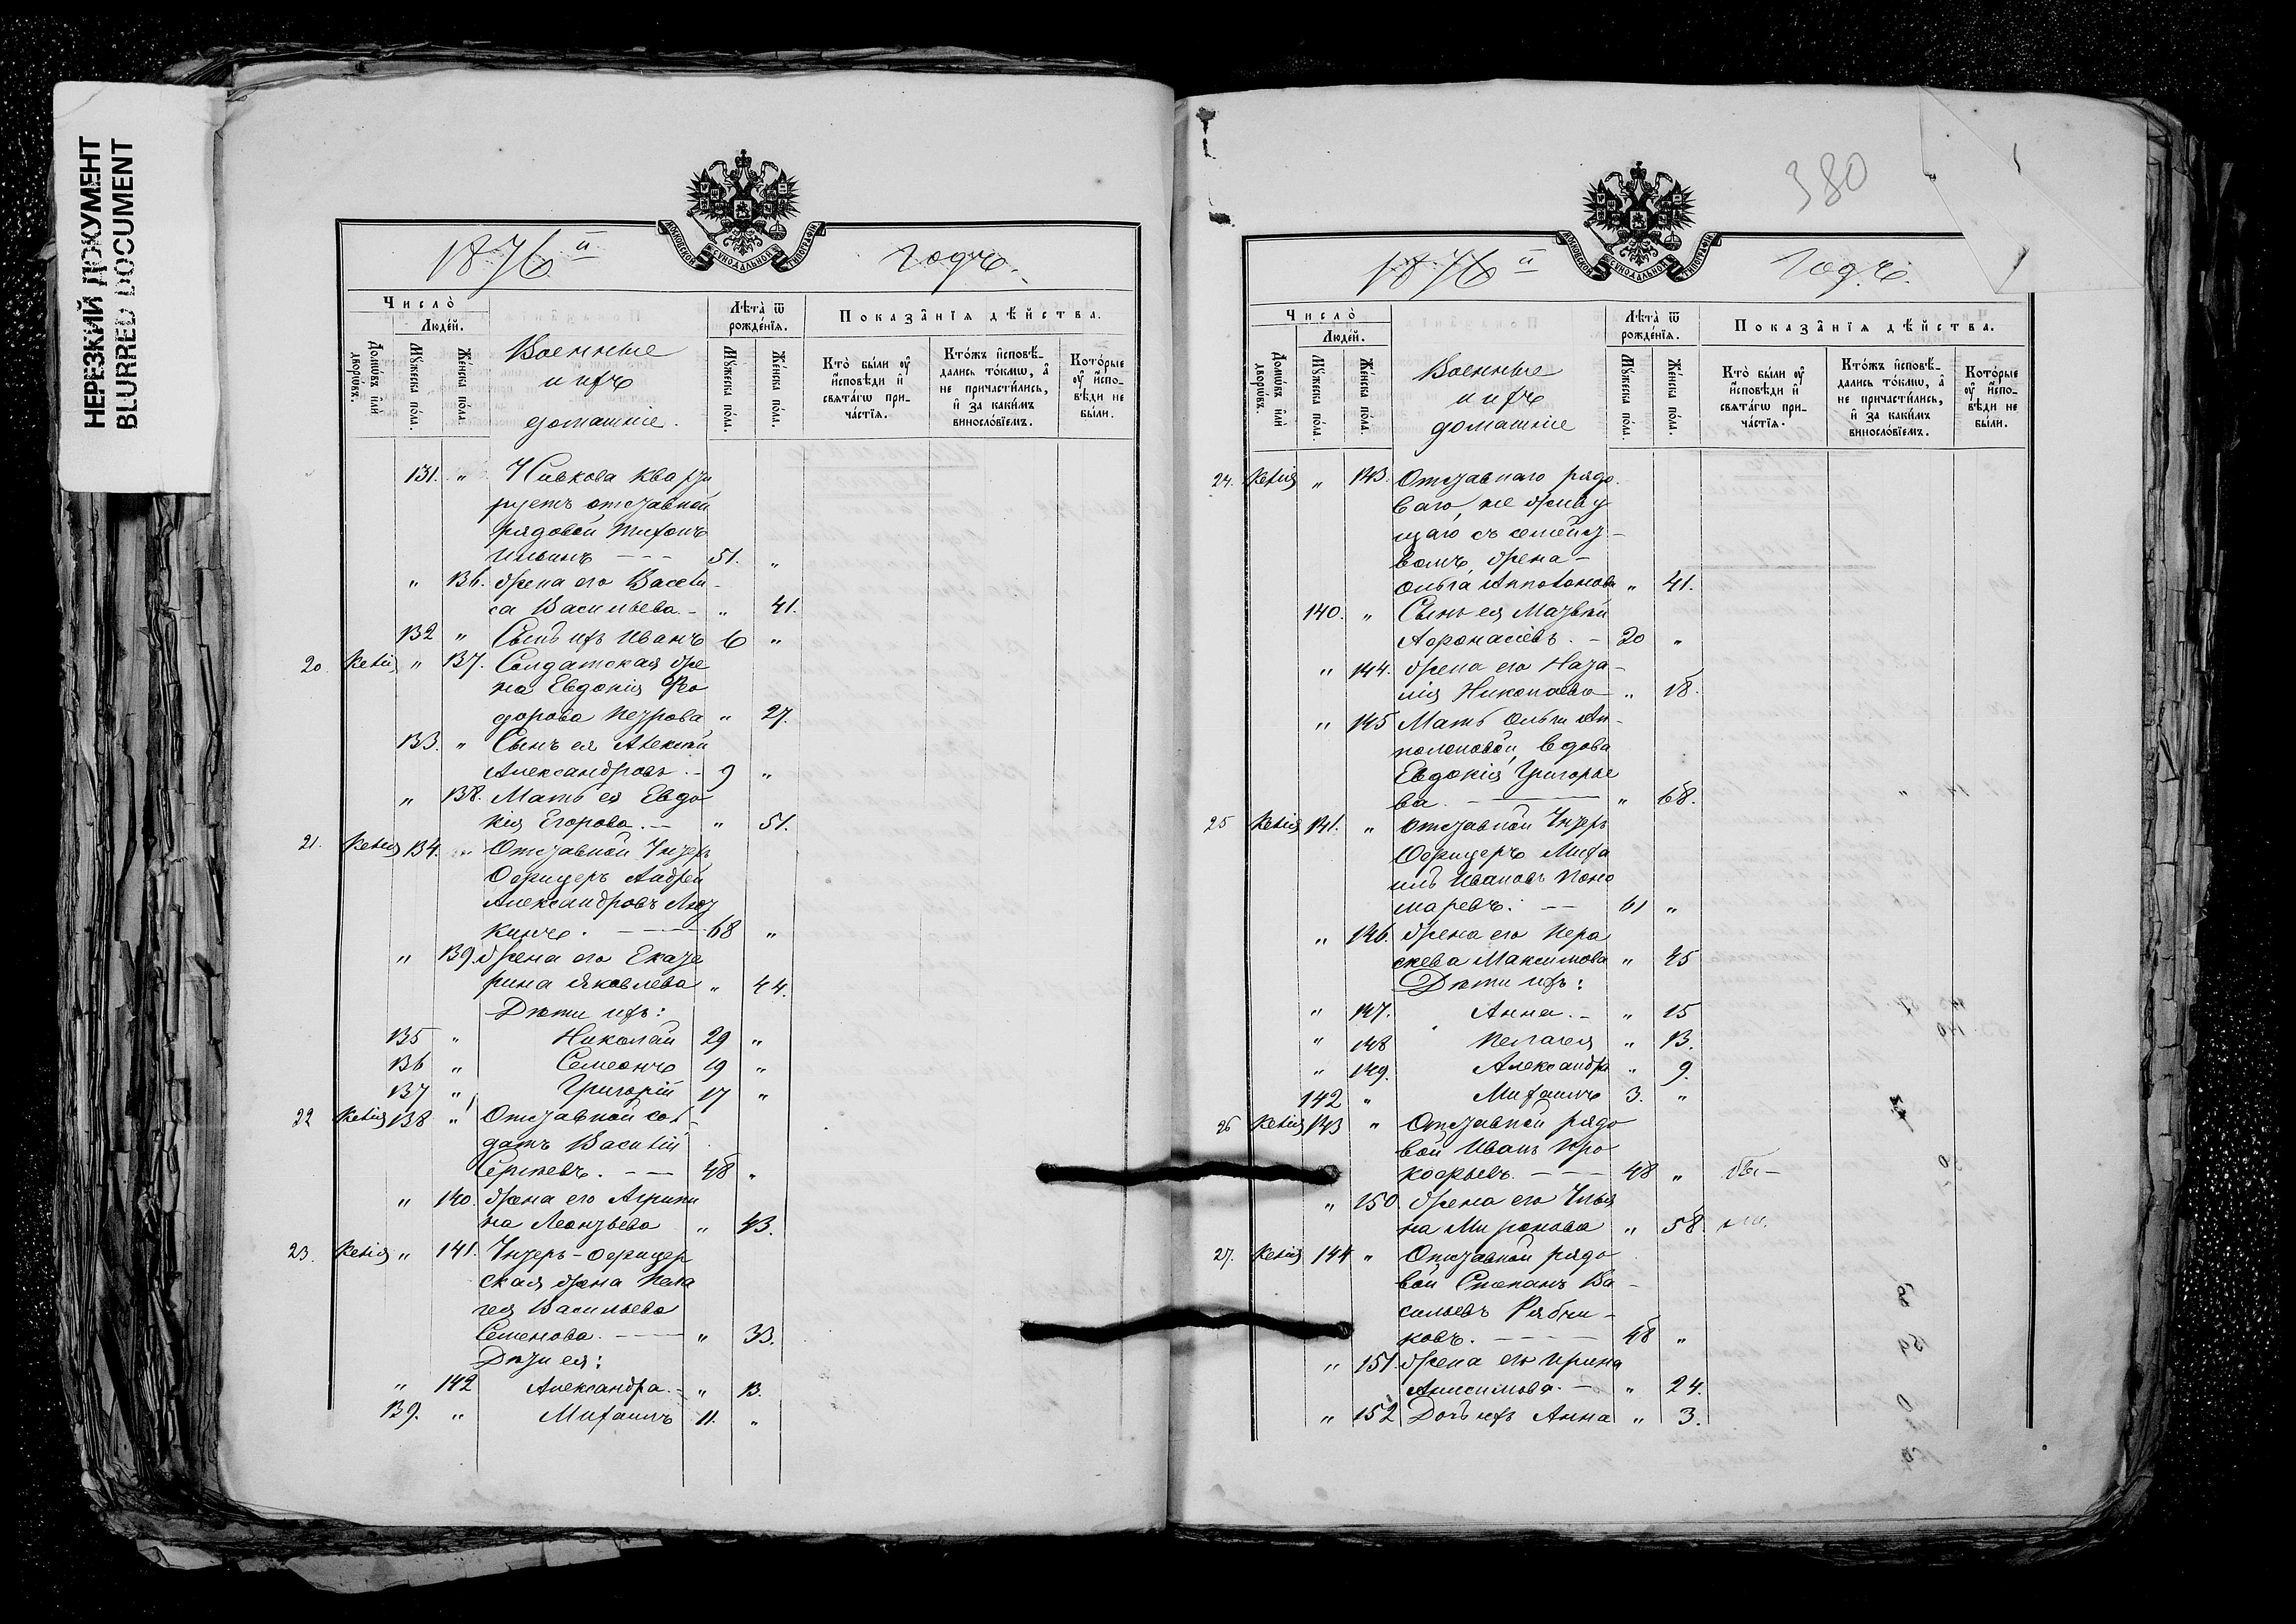 НЕРЕЗКИЙ ДОКУМЕНТ
BLURRED DOCUMENT
МОСКОВСКОЙ СѴНОДАЛЬНОЙ ТИПОГРАФІИ
1876й годъ.
Число̀
Людей.
Домѡвъ илѝ дворѡвъ.
Мꙋжеска пола.
Женска пола.
Военные
и ихъ
домашніе.
Лѣта̀ ѿ рождéнїѧ.
Мꙋжеска пола.
Женска пола.
Показанїѧ дѣйства.
Кто̀ были ᲂу҆ исповѣди и свѧтагѡ причастїѧ.
Ктожъ исповѣдались токмѡ, а не причастились, и за какимъ винословїемъ.
Которые ᲂу҆ исповѣди не были.
131. " Нивкова кварти
руетъ отставной
рядовой Тихонъ
Ильинъ --- 51. "
" 136. жена его Васси-
са Васильева.- " 41.
132 " Сынъ ихъ Иванъ 6 "
20 Келія " 137. Солдатская же
на Евдокія Ѳео
дорова Петрова " 27.
133. " Сынъ ея Алексѣй
Александровъ.- 9 "
" 138. Мать ея Евдо
кія Егорова.- " 51.
21. Келія 134. " Отставной Унтеръ
Офицеръ Андрей
Александровъ
кинъ. --- 68 "
" 139. жена его Екате
рина Яковлева " 44.
Дѣти ихъ:
135 " Николай 29 "
136 " Семеонъ 19 "
137 " Григорій 17 "
22 Келія 138 " Отставной сол-
датъ Василій
Сергѣевъ. -- 48 "
" 140. жена его Агрипи
на Леонтьева " 43.
23. Келія " 141. Унтеръ-офицер
ская жена Пела
гея Васильева
Семенова. -- " 33.
Дѣти ея:
" 142 Александра.- " 13.
139. " Михаилъ 11. "
380
МОСКОВСКОЙ СѴНОДАЛЬНОЙ ТИПОГРАФІИ
1876й годъ.
Число̀
Людей.
Домѡвъ илѝ дворѡвъ.
Мꙋжеска пола.
Женска пола.
Военные
и ихъ
домашніе
Лѣта̀ ѿ рождéнїѧ.
Мꙋжеска пола.
Женска пола.
Показанїѧ дѣйства.
Кто̀ были ᲂу҆ исповѣди и свѧтагѡ причастїѧ.
Ктожъ исповѣдались токмѡ, а не причастились, и за какимъ винословїемъ.
Которые ᲂу҆ исповѣди не были.
24. Келія " 143. Отставнаго рядо
ваго, не живу
щаго съ семейст-
вомъ, жена-
Ольга Апполонова " 41.
140. " Сынъ ея Матвѣй
Афонасіевъ. - 20 "
" 144. жена его Ната-
лія Николаева " 18.
" 145 Мать Ольги Ап-
полоновой, вдова
Евдокія Григорье
ва. --- " 68.
25 Келія 141. " Отставной Унтеръ
Офицеръ Миха
илъ Ивановъ Поно
маревъ. -- 61 "
" 146. жена его Пера
скева Максимова " 45
Дѣти ихъ:
" 147. Анна.- " 15
" 148 Пелагея " 13.
" 149. Александра " 9.
142 " Михаилъ 3. "
26 Келія 143 " Отставной рядо
вой Иванъ Про
кофьевъ. --- 48 " бы-
" 150 жена его Улья
на Миронова " 58. ли.
27. Келія 144 " Отставной рядо
вой Степанъ Ва-
сильевъ Рябчи-
ковъ. --- 48 "
" 151. жена его Ирина
Анисимова.- " 24.
" 152 Дочь ихъ Анна " 3.